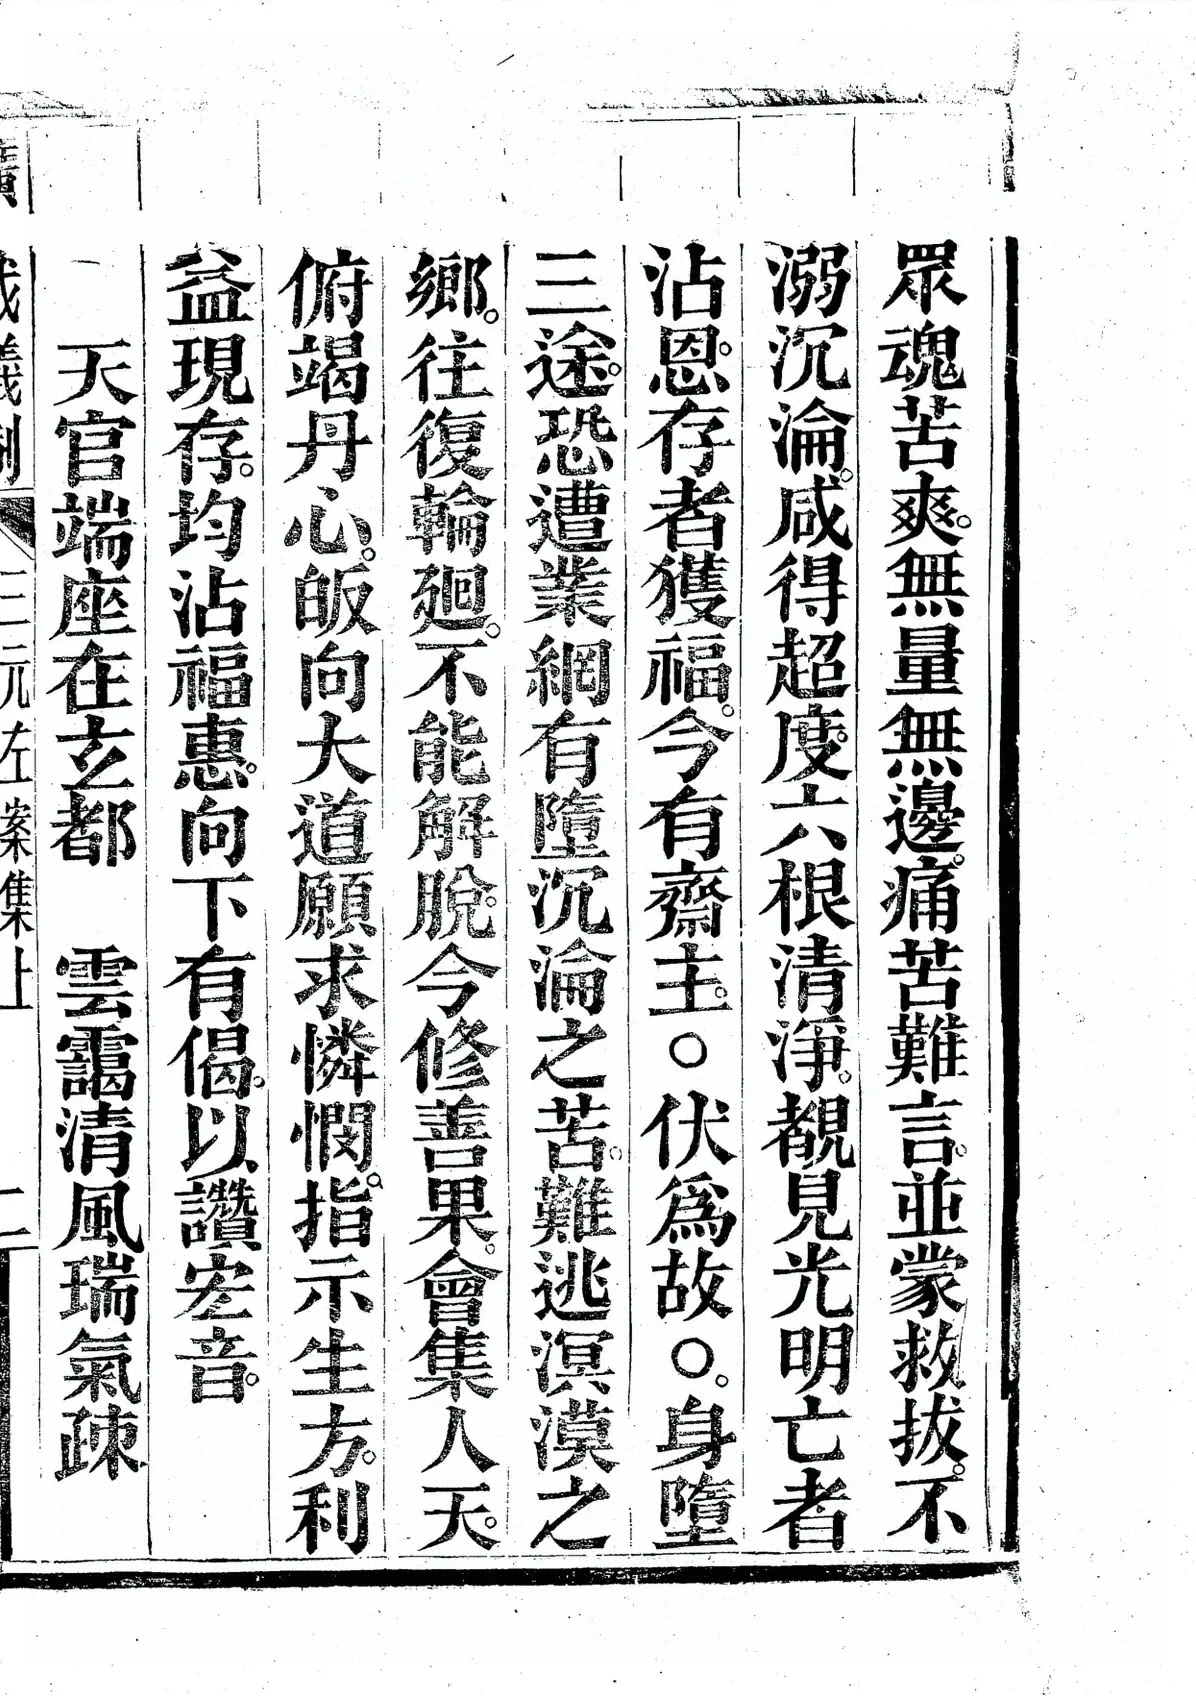 眾魂苦爽。無量無邊。痛苦難言。並蒙救拔。不
溺沉淪。咸得超度。六根清淨。覩見光明亡者
沾恩。存者獲福。今有齋主。○伏爲故○。身墮
三途。恐遭業網有墮沉淪之苦。難逃溟漠之
鄉。往復輪廻。不能解脫。今修善果。會集人天。
俯竭丹心。皈向大道願求憐憫。指示生方。利
益現存。均沾福惠。向下有偈。以讚宏音。
天官端座在玄都 雲靄清風瑞氣疎
廣成儀制 三元左案集上 二